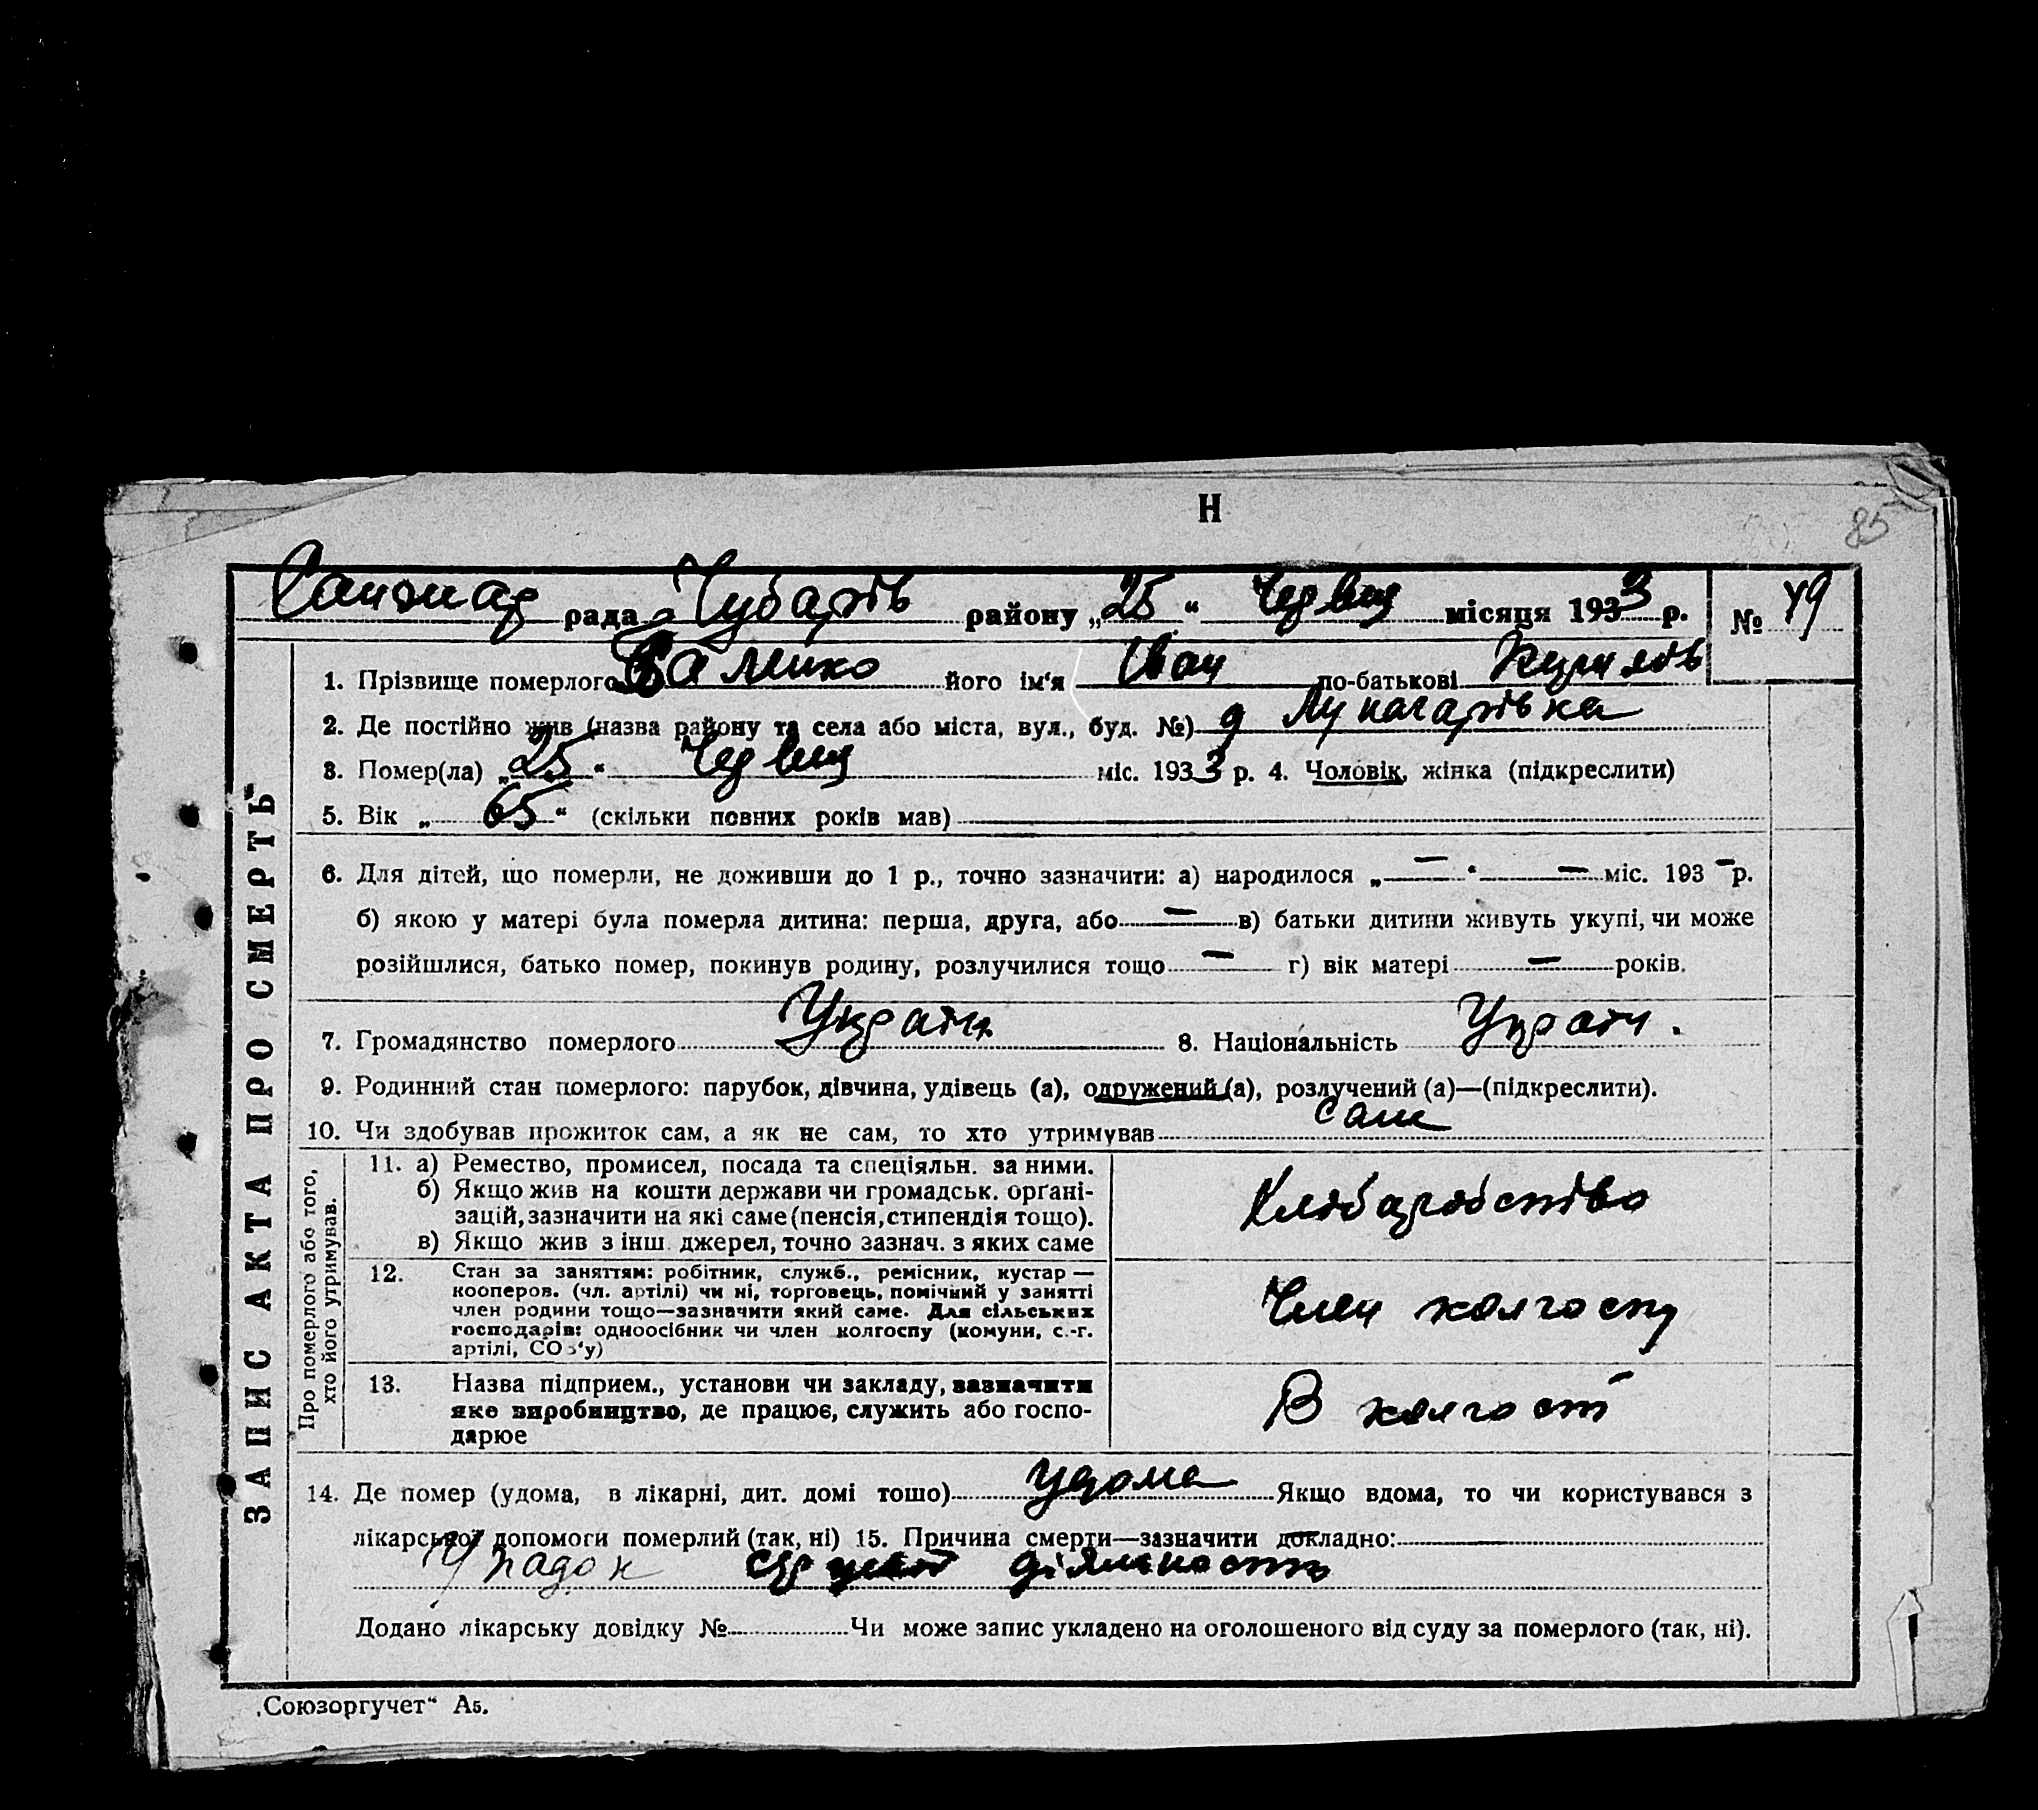 Н
85
Санжар рада Чубарів району „25“ Червня місяця 1933 р. № 49
1. Прізвище померлого його ім'я Іван по-батькові
2. Де постійно жив (назва району та села або міста, вул., буд. №) Луначарівка
3. Помер(ла) „25“ Червня міс. 1933 р. 4. Чоловік, жінка (підкреслити)
5. Вік „65“ (скільки повних років мав)
6. Для дітей, що померли, не доживши до 1 р., точно зазначити: а) народилося „—“ — міс. 193 – р.
б) якою у матері була померла дитина: перша, друга, або — в) батьки дитини живуть укупі, чи може
розійшлися, батько помер, покинув родину, розлучилися тощо — г) вік матері — років.
7. Громадянство померлого Україн. 8. Національність Україн.
9. Родинний стан померлого: парубок, дівчина, удівець (а), одружений (а), розлучений (а)—(підкреслити).
10. Чи здобував прожиток сам, а як не сам, то хто утримував сам
11. а) Ремество, промисел, посада та спеціяльн. за ними.
б) Якщо жив на кошти держави чи громадськ. орґані-
зацій, зазначити на які саме (пенсія, стипендія тощо).
в) Якщо жив з інш. джерел, точно зазнач. з яких саме
Хліборобство
12. Стан за заняттям: робітник, служб., ремісник, кустар —
кооперов. (чл. артілі) чи ні, торговець, помічний у занятті
член родини тощо—зазначити який саме. Для сільських
господарів: одноосібник чи член колгоспу (комуни, с.-г.
артілі, СОЗ'у)
Член колгоспу
13. Назва підприєм., установи чи закладу, зазначити
яке виробництво, де працює, служить або госпо-
дарює
В колгоспі
14. Де помер (удома, в лікарні, дит. домі тощо) удома Якщо вдома, то чи користувався з
лікарської допомоги померлий (так, ні) 15. Причина смерти—зазначити докладно:
Упадок діяльность
Додано лікарську довідку № Чи може запис укладено на оголошеного від суду за померлого (так, ні).
ЗАПИС АКТА ПРО СМЕРТЬ
Про померлого або того,
хто його утримував.
„Союзоргучет“ А5.